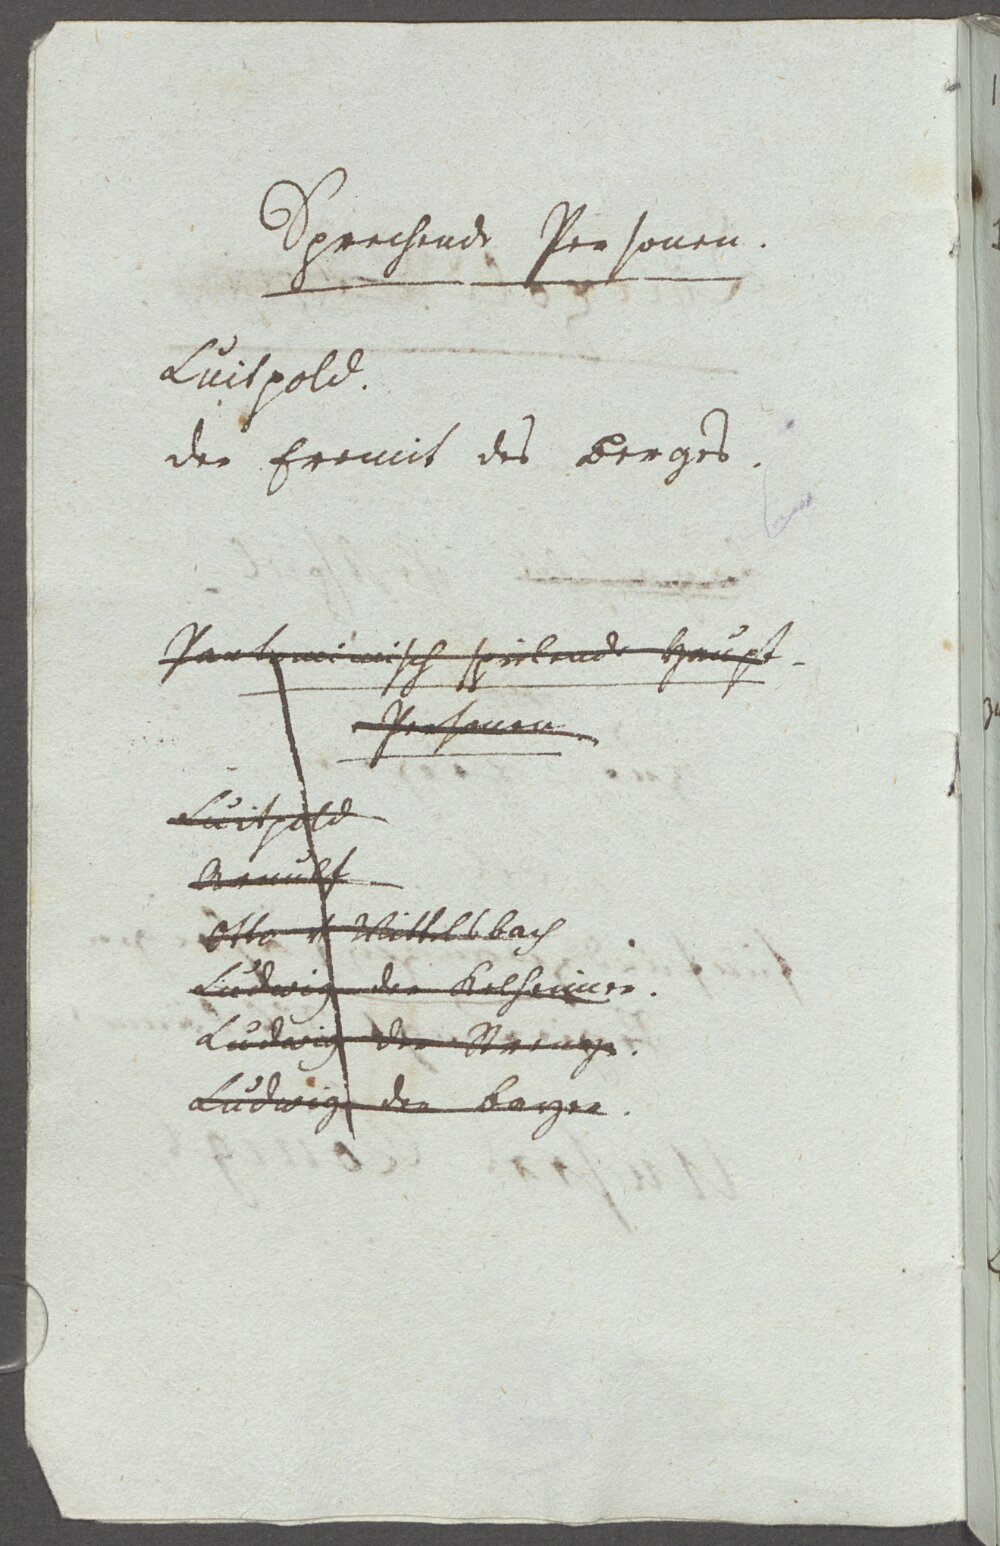 Sprechende Personen.
Luitpold.
der Eremit des Berges.
Pantomimisch spielende Haupt-
Personen.
Luitpold
Arnulf
Otto v. Wittelsbach
Ludwig der Kelheimer.
Ludwig der Strenge.
Ludwig der Bayer.